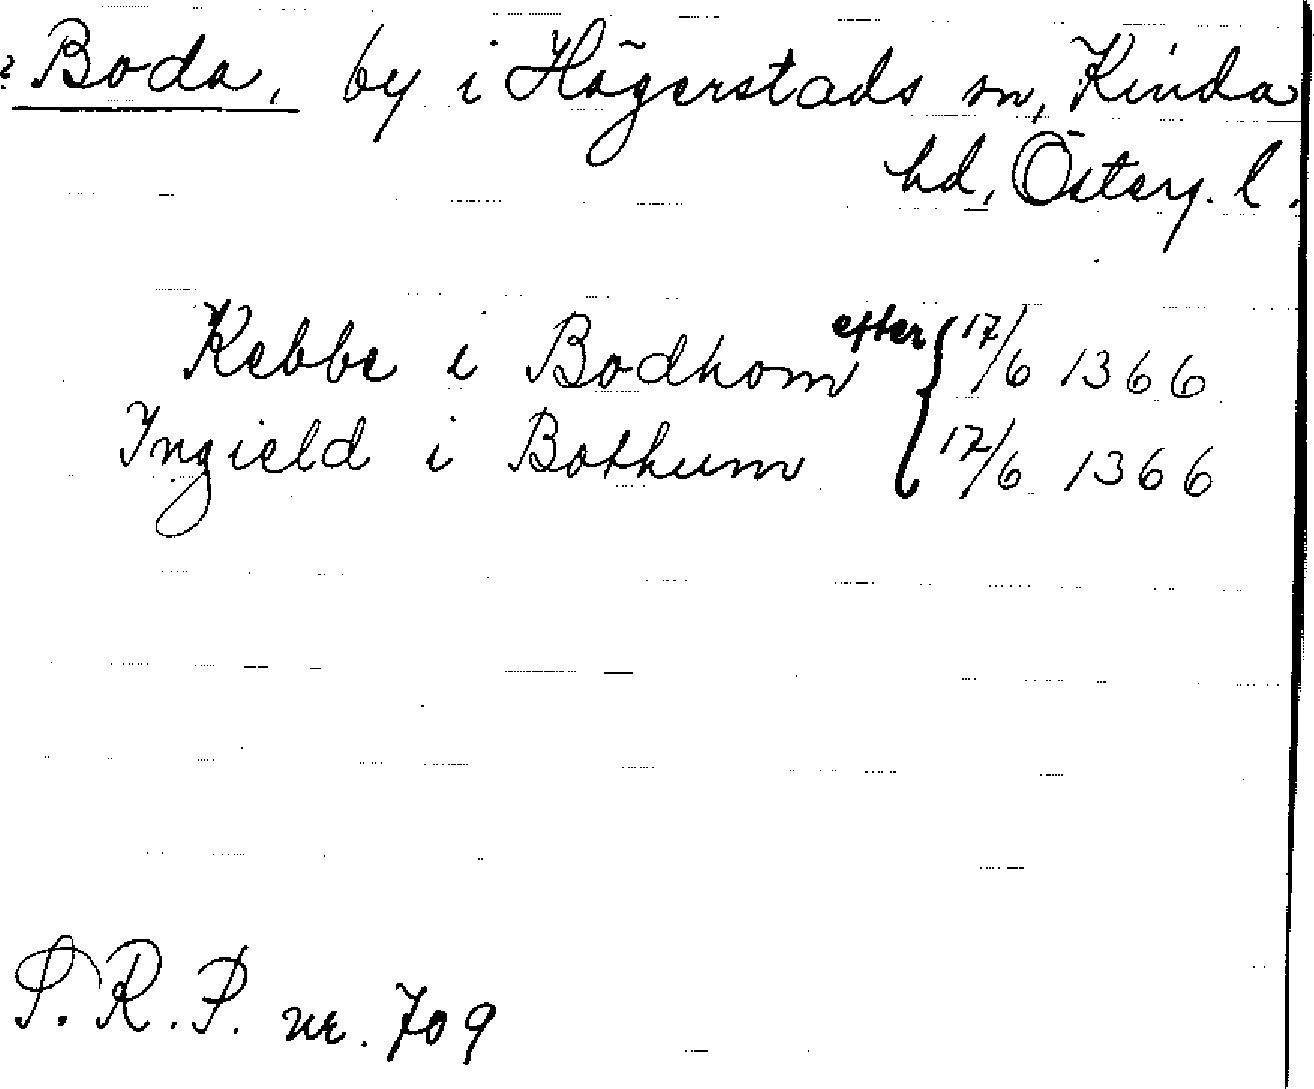 ? Boda, by i Hägerstads sn, Kinda
hd, Österg. l.
Kebbe i Bodhom efter { 17/6 1366
Ingield i Bothum 17/6 1366
S. R. P. nr. 709